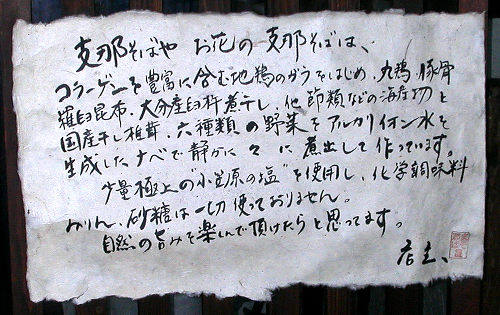 支那そばや お花の支那そばは、
コラーゲンを豊富に含む地鶏のガラをはじめ、丸鶏、豚骨
羅臼昆布、大分産臼杵煮干し、他節類などの海産物と
国産干し椎茸、六種類の野菜をアルカリイオン水を
生成したナベで静かに 々に煮出して作っています。
少量極上の"小笠原の塩"を使用し、化学調味料
みりん、砂糖は一切使っておりません。
自然の旨みを楽しんで頂けたらと思ってます。
店主、